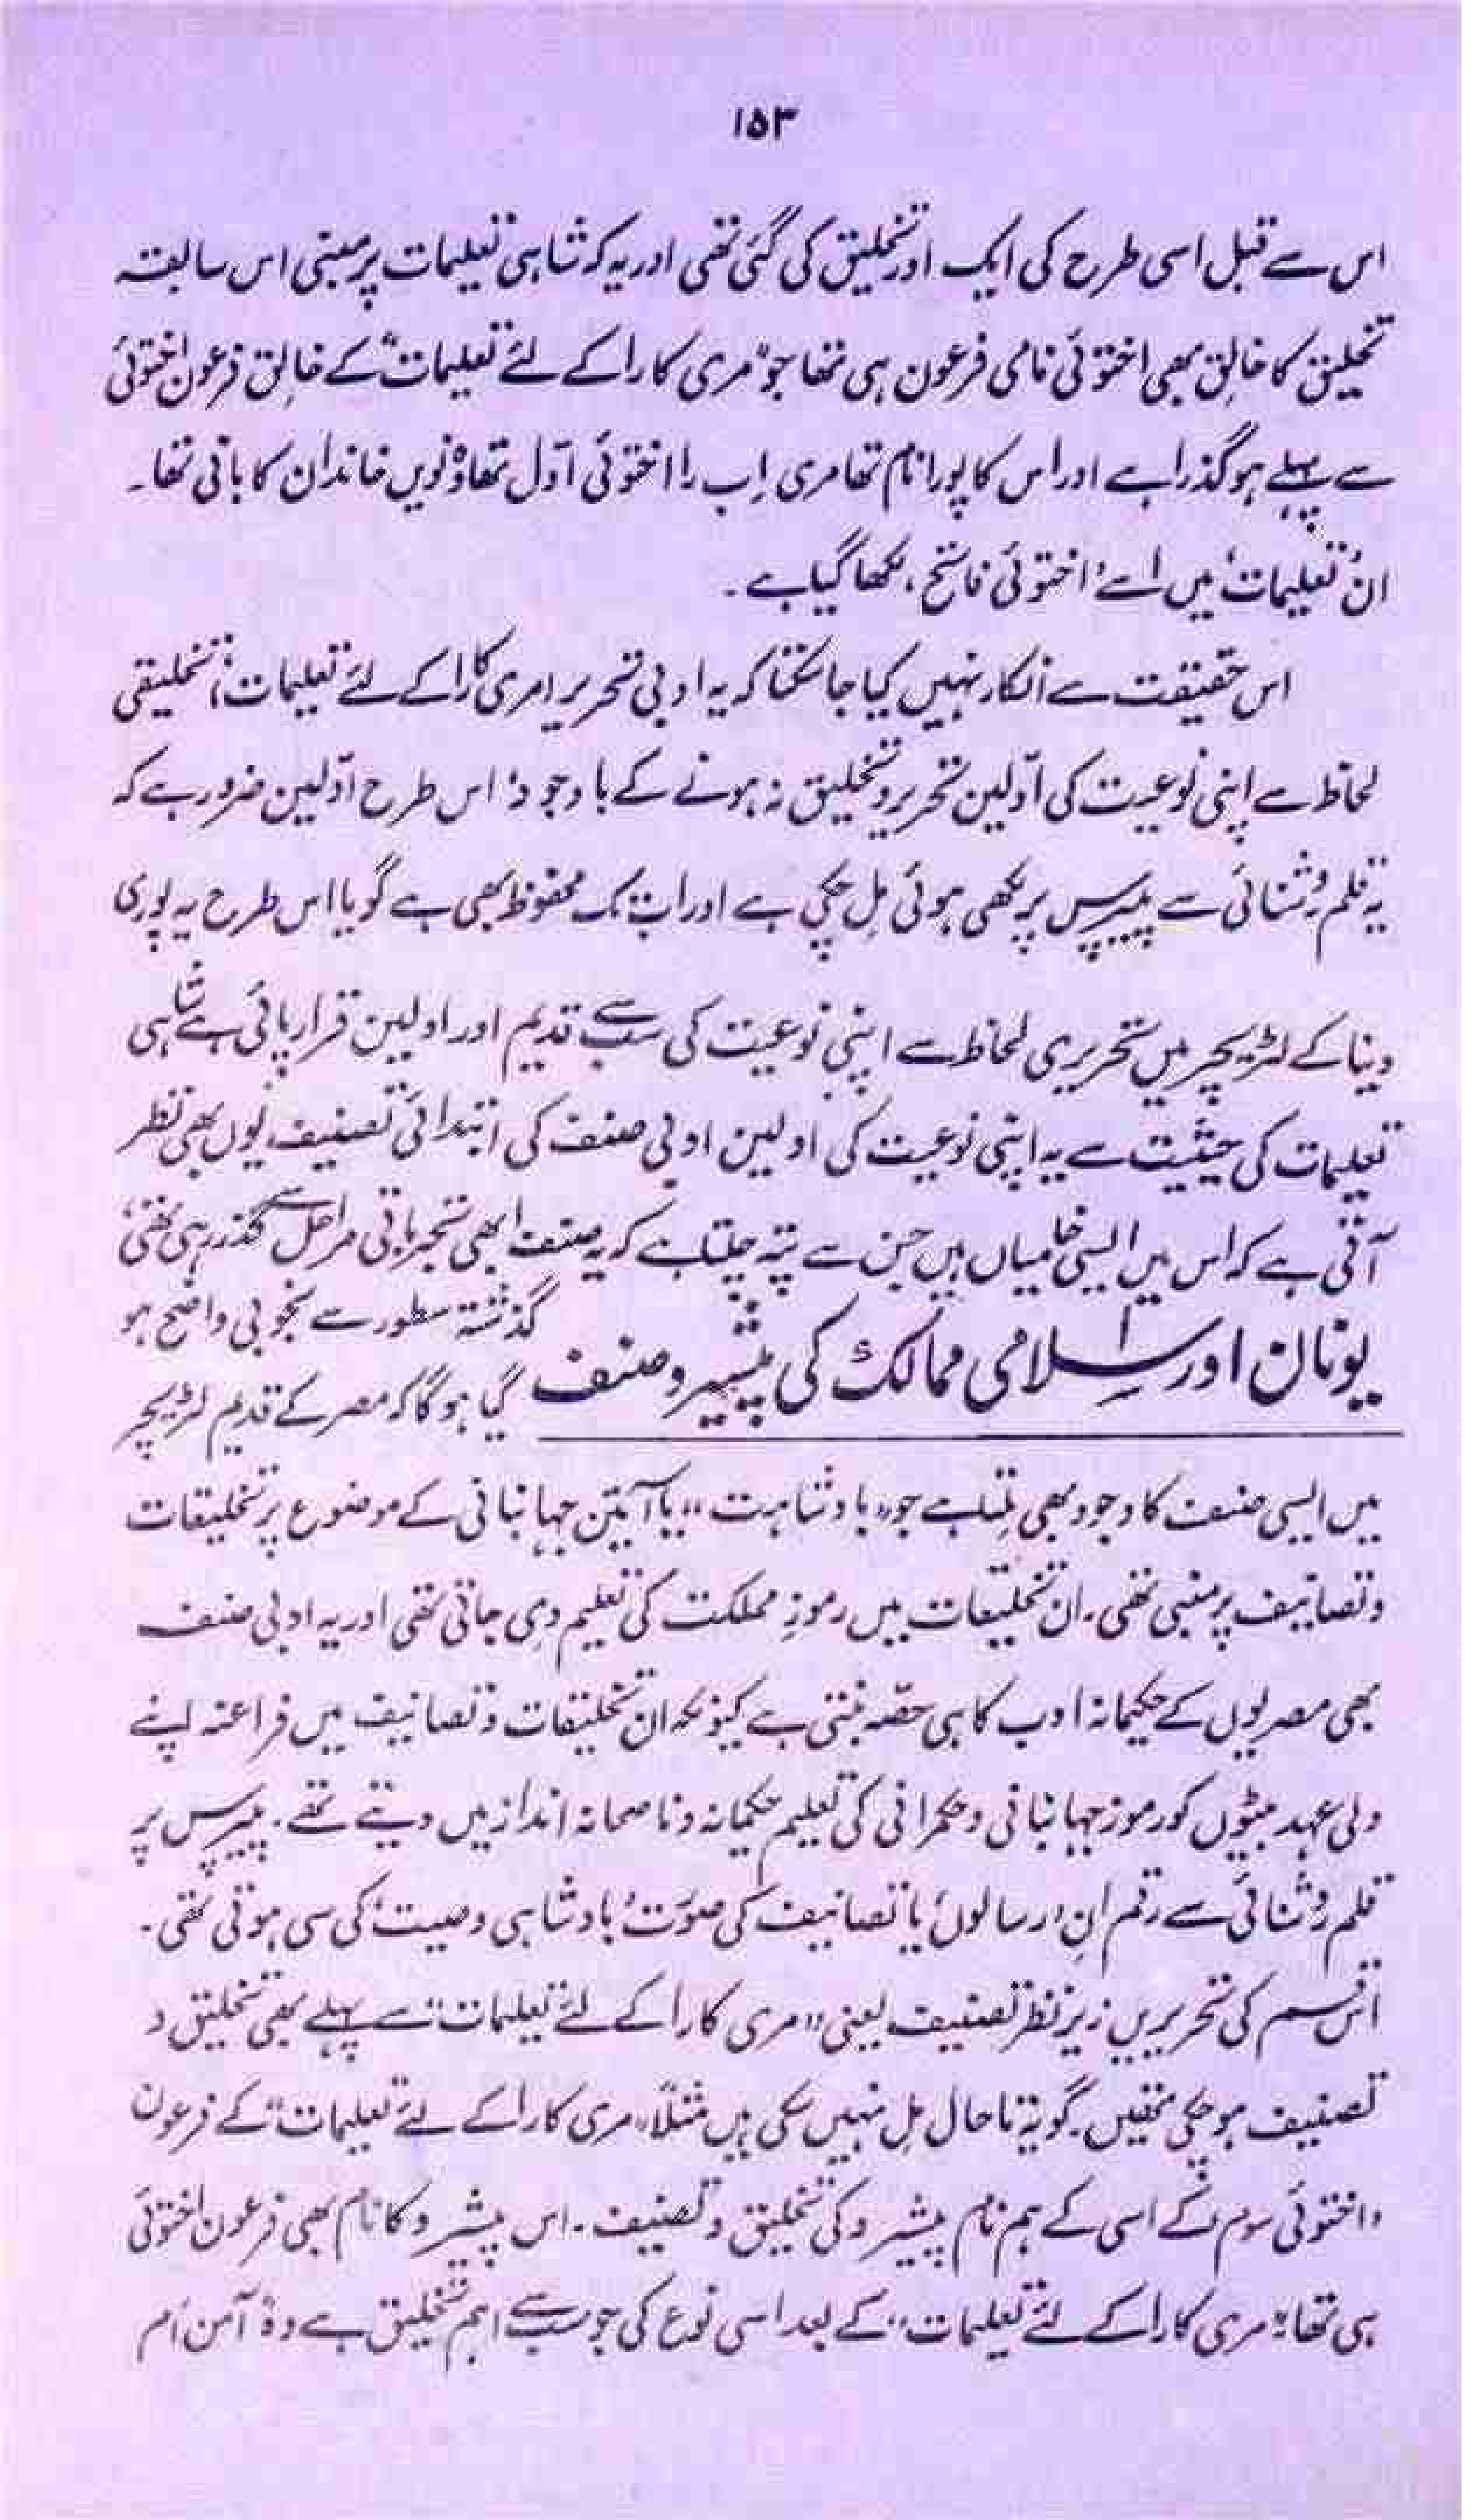 ۱۵۳
اس سے قبل اسی طرح کی ایک اور تخلیق کی گئی تھی اور یہ کہ شاہی تعلیمات پر مبنی اس سابقہ
تخلیق کا خالق بھی اختوئی نامی فرعون ہی تھا جو "مری کارا کے لئے تعلیمات" کے خالق فرعون اختوئی
سے پہلے ہو گذرا ہے اور اس کا پورا نام تھا مری اِب را اختوئی اوّل تھا وہ نویں خاندان کا بانی تھا۔
ان 'تعلیمات' میں اسے 'اختوئی فاتح' لکھا گیا ہے۔
اس حقیقت سے انکار نہیں کیا جا سکتا کہ یہ ادبی تحریر (مری کارا کے لئے تعلیمات) تخلیقی
لحاظ سے اپنی نوعیت کی اوّلین تحریر و تخلیق نہ ہونے کے باوجود' اس طرح اوّلین ضرور ہے کہ
یہ قلم روشنائی سے پیپرس پر لکھی ہوئی مِل چکی ہے اور اب تک محفوظ بھی ہے گویا اس طرح یہ پوری
دنیا کے لٹریچر میں تحریری لحاظ سے اپنی نوعیت کی سب سے قدیم اور اولین قرار پائی ہے شاہی
تعلیمات کی حیثیت سے یہ اپنی نوعیت کی اولین ادبی صنف کی ابتدائی تصنیف یوں بھی نظر
آتی ہے کہ اس میں ایسی خامیاں ہیں جن سے پتہ چلتا ہے کہ یہ صنف ابھی تجرباتی مراحل سے گذر رہی تھی،
یونان اور اسلامی ممالک کی پیشرو صنف
گذشتہ سطور سے بخوبی واضح ہو
گیا ہو گا کہ مصر کے قدیم لٹریچر
میں ایسی صنف کا وجود بھی ملتا ہے جو "بادشاہت" یا آئینِ جہانبانی کے موضوع پر تخلیقات
و تصانیف پر مبنی تھی۔ ان تخلیقات میں رموزِ مملکت کی تعلیم دی جاتی تھی اور یہ ادبی صنف
بھی مصریوں کے حکیمانہ ادب کا ہی حصّہ بنتی ہے کیونکہ ان تخلیقات و تصانیف میں فراعنہ اپنے
ولی عہد بیٹوں کو رموزِ جہانبانی و حکمرانی کی تعلیم حکیمانہ و ناصحانہ انداز میں دیتے تھے۔ پیپرس پر
قلم روشنائی سے رقم اِن 'رسالوں' یا تصانیف کی صورت 'بادشاہی وصیت' کی سی ہوتی تھی۔
اس قسم کی تحریریں زیرِ نظر تصنیف یعنی "مری کارا کے لئے تعلیمات" سے پہلے بھی تخلیق و
تصنیف ہو چکی تھیں۔ گو یہ تا حال مِل نہیں سکی ہیں مثلاً "مری کارا کے لئے تعلیمات" کے فرعون
'اختوئی سوم' کے اسی کے ہم نام پیشرو کی تخلیق و تصنیف۔ اس پیشرو کا نام بھی فرعون اختوئی
ہی تھا؛ "مری کارا کے لئے تعلیمات" کے بعد اسی نوع کی جو سب سے اہم تخلیق ہے وہ آمن اَم